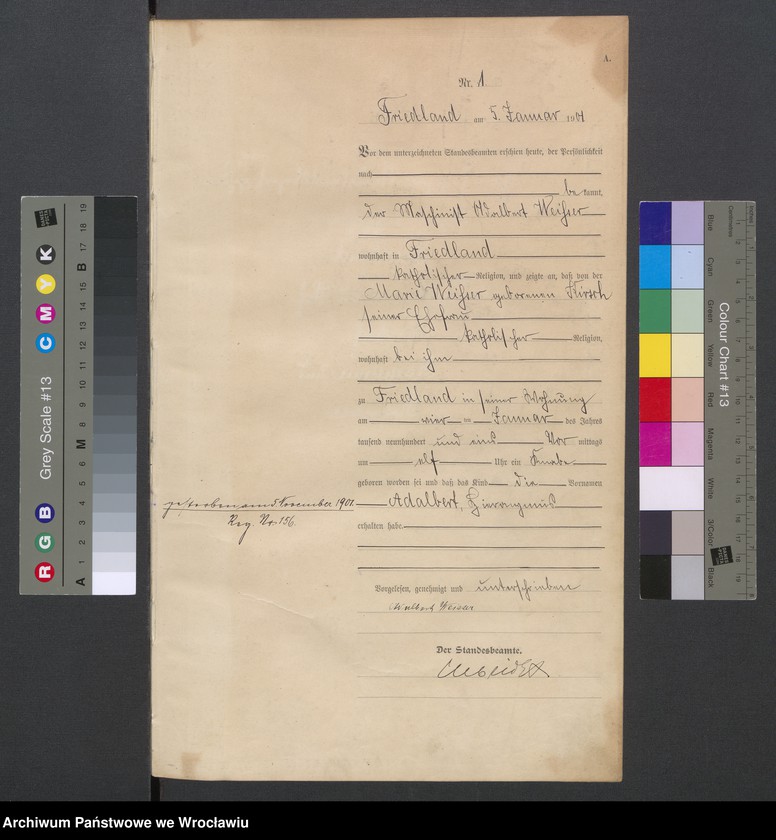 A.
Nr. 1
Friedland am 5. Januar 1901
Vor dem unterzeichneten Standesbeamten erschien heute, der Persönlichkeit
nach
be kannt,
der Maschinist Adalbert Weihser
wohnhaft in Friedland
katholischer Religion, und zeigte an, daß von der
Marie Weihser geborenen Hirsch
seiner Ehefrau
katholischer Religion,
wohnhaft bei ihm
zu Friedland in seiner Wohnung
am vier ten Januar des Jahres
tausend neunhundert und eins Vor mittags
um elf Uhr ein Knabe
geboren worden sei und daß das Kind die Vornamen
Adalbert, Hieronymus
erhalten habe
gestorben am 5 November 1901.
Reg. Nr. 156.
Vorgelesen, genehmigt und unterschrieben
Adalbert
Der Standesbeamte.
Grey Scale #13
A 1 2 3 4 5 6 M 8 9 10 11 12 13 14 15 B 17 18 19
R G B C M Y K
Colour Chart #13
Blue
Cyan
Green
Yellow
Red
Magenta
White
3/Color
Black
Centimetres
Inches
Archiwum Państwowe we Wrocławiu